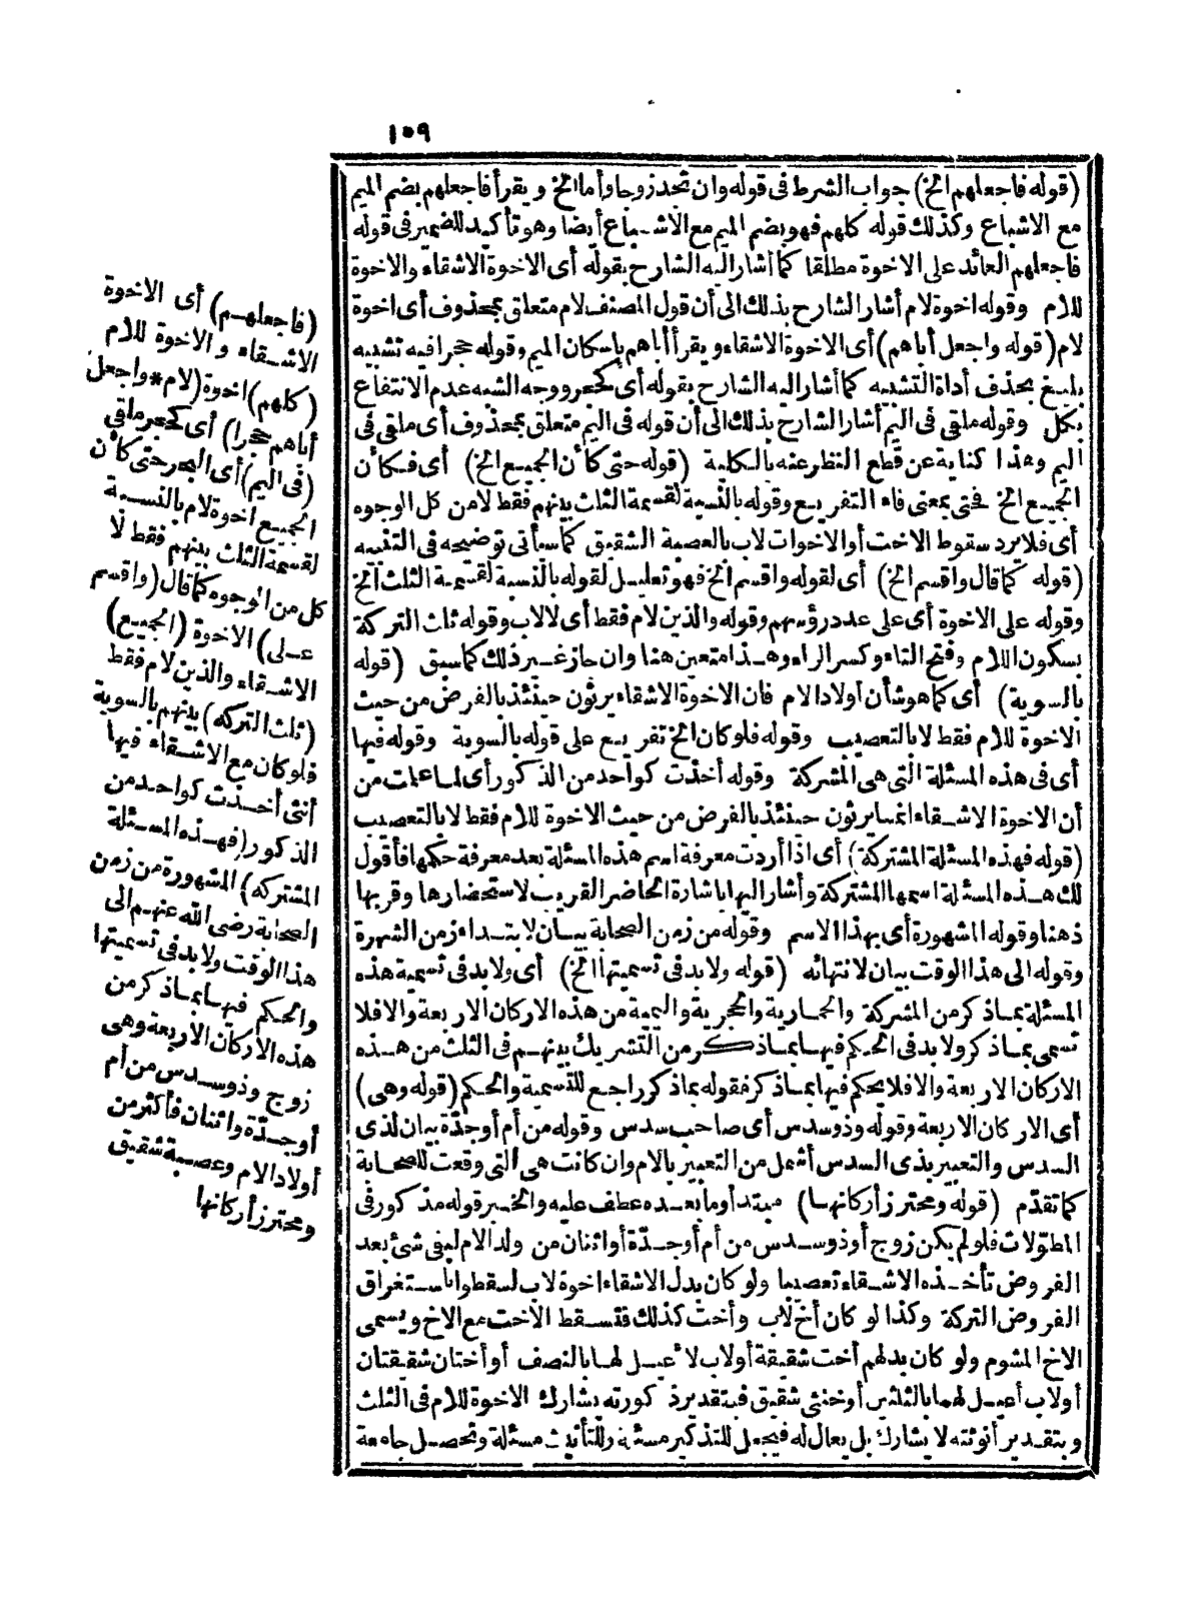 ١٠٩
(قوله فاجعلهم الخ) جواب الشرط فى قوله وان تجد زوجا وأما الخ ويقرأ فاجعلهم بضم الميم
مع الاشباع وكذلك قوله كلهم فهو بضم الميم مع الاشباع أيضا وهو تأكيد للضمير فى قوله
فاجعلهم العائد على الاخوة مطلقا كما أشار اليه الشارح بقوله أى الاخوة الاشقاء والاخوة
للام وقوله اخوة لام أشار الشارح بذلك الى أن قول المصنف لام متعلق بمحذوف أى اخوة
لام (قوله واجعل أباهم) أى الاخوة الاشقاء ويقرأ أباهم باسكان الميم وقوله حجرا فيه تشبيه
بليغ بحذف أداة التشبيه كما أشار اليه الشارح بقوله أى كحجر ووجه الشبه عدم الانتفاع
بكل وقوله ملقى فى اليم أشار الشارح بذلك الى أن قوله فى اليم متعلق بمحذوف أى ملقى فى
اليم وهذا كناية عن قطع النظر عنه بالكلية (قوله حتى كأن الجميع الخ) أى فكأن
الجميع الخ فحتى بمعنى فاء التفريع وقوله بالنسبة لقسمة الثلث بينهم فقط لا من كل الوجوه
أى فلا يرد سقوط الاخت أو الاخوات لاب بالعصبة الشقيق كما سيأتى توضيحه فى التنبيه
(قوله كما قال واقسم الخ) أى لقوله واقسم الخ فهو تعليل لقوله بالنسبة لقسمة الثلث الخ
وقوله على الاخوة أى على عدد رؤسهم وقوله والذين لام فقط أى لا لاب وقوله ثلث التركة
بسكون اللام وفتح التاء وكسر الراء وهذا متعين هنا وان جاز غير ذلك كما سبق (قوله
بالسوية) أى كما هو شأن أولاد الام فان الاخوة الاشقاء يرثون حينئذ بالفرض من حيث
الاخوة للام فقط لا بالتعصيب وقوله فلو كان الخ تفريع على قوله بالسوية وقوله فيها
أى فى هذه المسئلة التى هى المشركة وقوله أخذت كواحد من الذكور أى لما علمت من
أن الاخوة الاشقاء انما يرثون حينئذ بالفرض من حيث الاخوة للام فقط لا بالتعصيب
(قوله فهذه المسئلة المشتركة) أى اذا أردت معرفة اسم هذه المسئلة بعد معرفة حكمها فأقول
لك هذه المسئلة اسمها المشتركة وأشار اليها باشارة الحاضر القريب لاستحضارها وقربها
ذهنا وقوله المشهورة أى بهذا الاسم وقوله من زمن الصحابة بيان لابتداء زمن الشهرة
وقوله الى هذا الوقت بيان لانتهائه (قوله ولا بد فى تسميتها الخ) أى ولا بد فى تسمية هذه
المسئلة بما ذكر من المشركة والحمارية والحجرية واليمية من هذه الاركان الاربعة والا فلا
تسمى بما ذكر ولا بد فى الحكم فيها بما ذكر من التشريك بينهم فى الثلث من هذه
الاركان الاربعة والا فلا يحكم فيها بما ذكر فقوله بما ذكر راجع للتسمية والحكم (قوله وهى)
أى الاركان الاربعة وقوله وذو سدس أى صاحب سدس وقوله من أم أو جدّة بيان لذى
السدس والتعبير بذى السدس أشمل من التعبير بالام وان كانت هى التى وقعت للصحابة
كما تقدّم (قوله ومحترز أركانها) مبتدأ وما بعده عطف عليه والخبر قوله مذكور فى
المطوّلات فلو لم يكن زوج أو ذو سدس من أم أو جدّة أو اثنان من ولد الام لبقى شئ بعد
الفروض تأخذه الاشقاء تعصيبا ولو كان بدل الاشقاء اخوة لاب لسقطوا باستغراق
الفروض التركة وكذا لو كان أخ لاب وأخت كذلك فتسقط الاخت مع الاخ ويسمى
الاخ المشوم ولو كان بدلهم أخت شقيقة أو لاب لأعيل لها بالنصف أو أختان شقيقتان
أو لاب أعيل لهما بالثلثين أو خنثى شقيق فبتقدير ذكورته يشارك الاخوة للام فى الثلث
وبتقدير أنوثته لا يشارك بل يعال له فيجعل للتذكير مسئلة وللتأنيث مسئلة وتحصل جامعة
(فاجعلهم) أى الاخوة
الاشقاء والاخوة للام
(كلهم) اخوة (لام * واجعل
أباهم حجرا) أى كحجر ملقى
(فى اليم) أى البحر حتى كأن
الجميع اخوة لام بالنسبة
لقسمة الثلث بينهم فقط لا
كل من الوجوه كما قال (واقسم
على) الاخوة (الجميع)
الاشقاء والذين لام فقط
(ثلث التركه) بينهم بالسوية
فلو كان مع الاشقاء فيها
أنثى أخذت كواحد من
الذكور (فهذه المسئلة
المشتركه) المشهورة من زمن
الصحابة رضى الله عنهم الى
هذا الوقت ولا بد فى تسميتها
والحكم فيها بما ذكر من
هذه الاركان الاربعة وهى
زوج وذو سدس من أم
أو جدّة واثنان فأكثر من
أولاد الام وعصبة شقيق
ومحترز أركانها